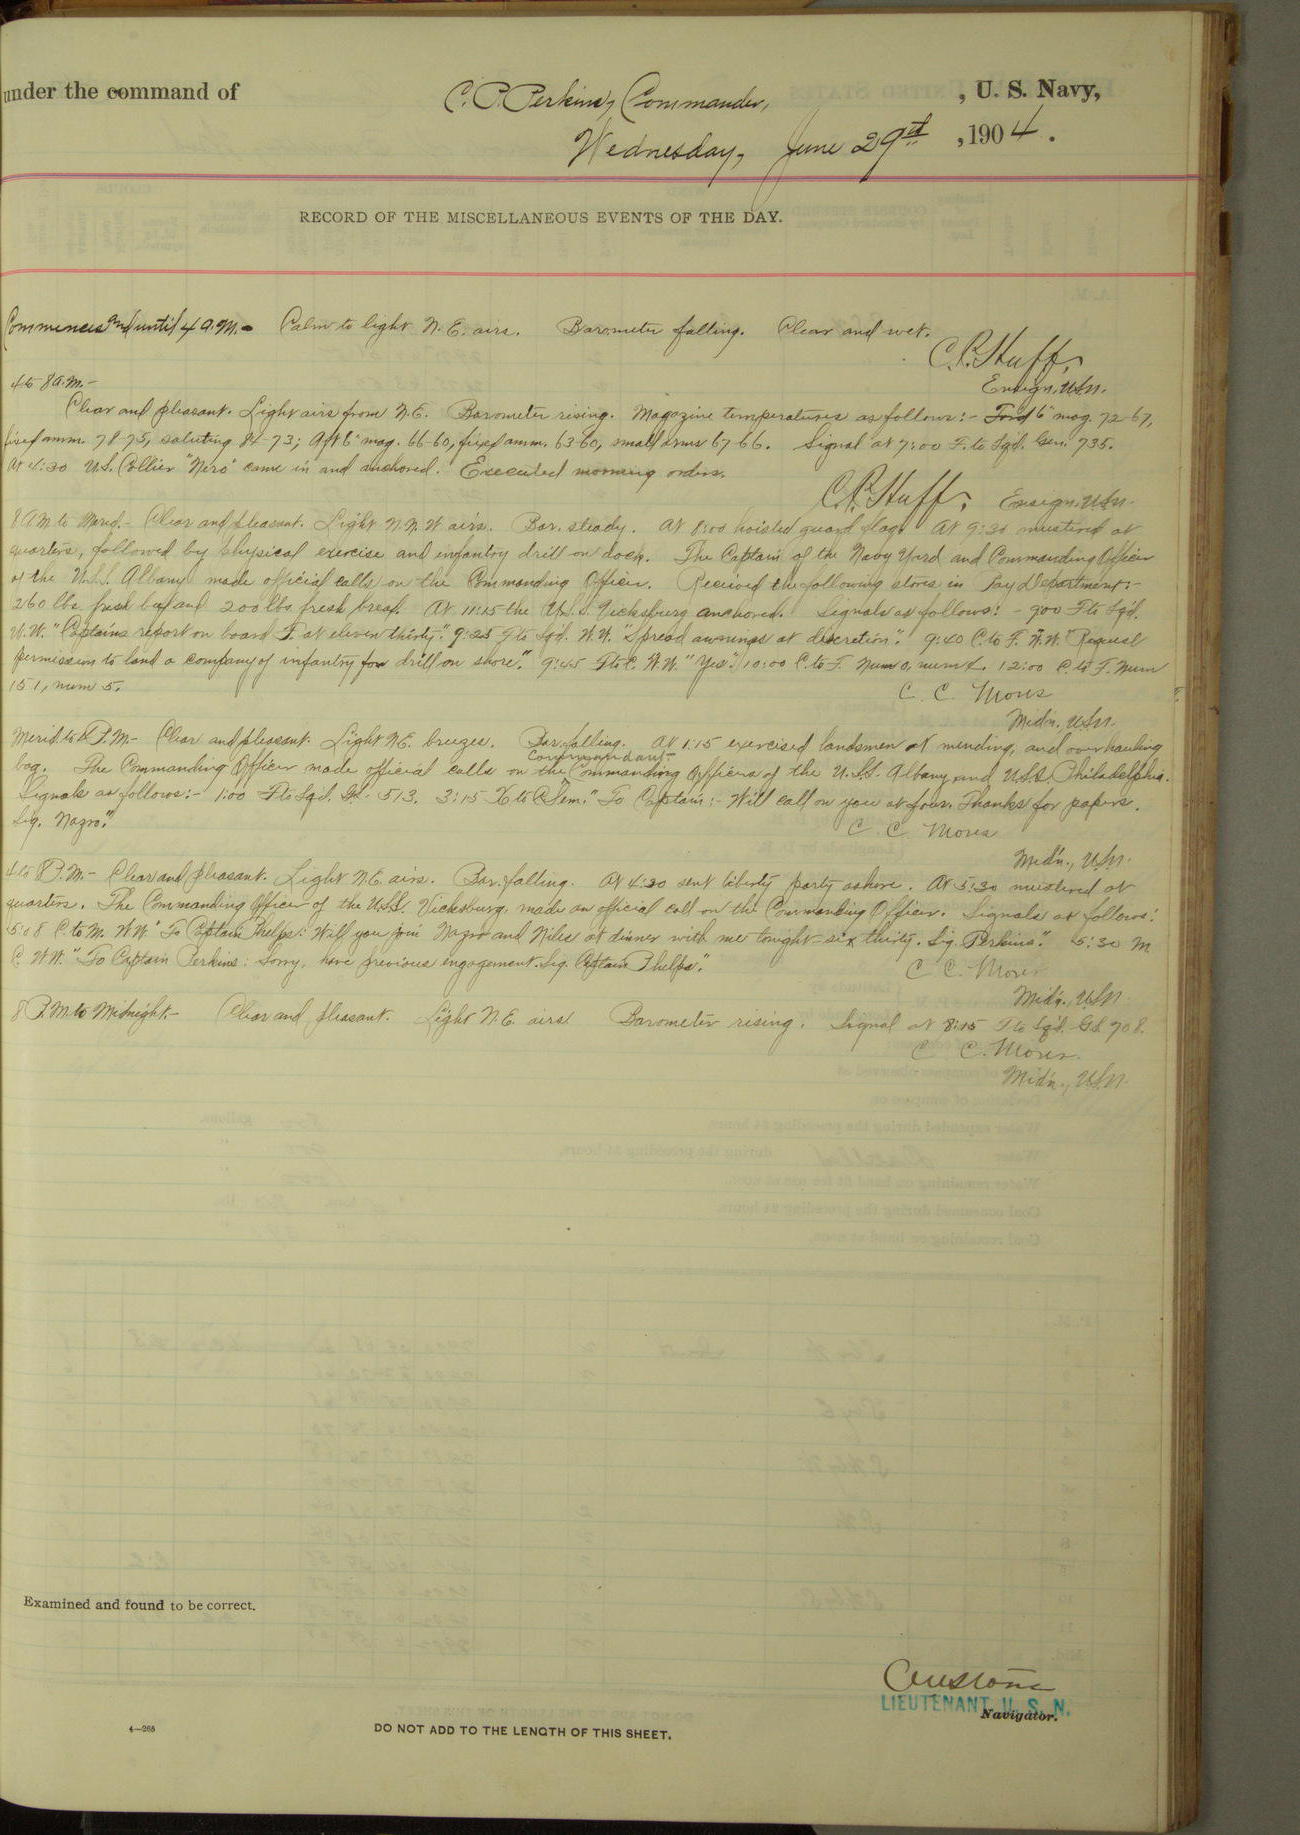 under the command of C. P. Perkins, Commander, , U. S. Navy,
Wednesday, June 29th , 1904.
RECORD OF THE MISCELLANEOUS EVENTS OF THE DAY.
Commences and until 4 a.m.- Calm to light N.E. airs. Barometer falling. Clear and wet.
Ensign, U.S.N.
4 to 8 a.m.-
Clear and pleasant. Light airs from N.E. Barometer rising. Magazine temperatures as follows:- Ford 6" mag. 72-67,
fixed amm. 78-75, saluting 84-73; Aft 6" mag. 66-60, fixed amm. 63-60, small arms 67-66. Signal at 7:00 F. to Sqd. Gen. 735.
At 4:30 U.S. Collier "Nero" came in and anchored. Executed morning orders.
Ensign, U.S.N.
8 AM to Merid.- Clear and pleasant. Light N.N.W. airs. Bar. steady. At 8:00 hoisted guard flag. At 9:30 mustered at
quarters, followed by physical exercise and infantry drill on dock. The Captain of the Navy Yard and Commanding Officer
of the U.S.S. Albany made official calls on the Commanding Officer. Received the following stores in Pay Department:-
260 lbs fresh beef and 200 lbs fresh bread. At 11:15 the U.S.S. Vicksburg anchored. Signals as follows:- 9:00 F to Sqd.
W.W. "Captains report on board F. at eleven thirty". 9:25 F to Sqd. W.W. "Spread awnings at discretion". 9:40 C. to F. W.W. "Request
permission to land a company of infantry for drill on shore". 9:45 F to C. W.W. "Yes". 10:00 C. to F. Num 0, num 4. 12:00 C. to F. Num
151, num 5.
C. C. Moses
Midn., U.S.N.
Merid. to 4 P.M.- Clear and pleasant. Light N.E. breezes. Bar. falling. At 1:15 exercised landsmen at mending, and overhauling
bag. The Commanding Officer made official calls on the Commandant Commanding Officers of the U.S.S. Albany and U.S.S. Philadelphia.
Signals as follows:- 1:00 F to Sqd. 513. 3:15 to C Sem. "To Captain:- Will call on you at four. Thanks for papers.
Sig. Nazro."
C. C. Moses
Midn., U.S.N.
4 to 8 P.M.- Clear and pleasant. Light N.E. airs. Bar. falling. At 4:30 sent liberty party ashore. At 5:30 mustered at
quarters. The Commanding Officer of the U.S.S. Vicksburg, made an official call on the Commanding Officer. Signals as follows:
5:08 C. to M. W.W. "To Captain Phelps: Will you join Nazro and Niles at dinner with me tonight-six thirty. Sig. Perkins." 5:30 M
C. W.W. "To Captain Perkins: Sorry, have previous engagement. Sig. Captain Phelps".
C. C. Moses
Midn., U.S.N.
8 P.M. to Midnight.- Clear and pleasant. Light N.E. airs. Barometer rising. Signal at 8:15 F to Sqd. G.S. 708.
C. C. Moses.
Midn., U.S.N.
Examined and found to be correct.
LIEUTENANT, U. S. N.
Navigator.
4—268
DO NOT ADD TO THE LENGTH OF THIS SHEET.